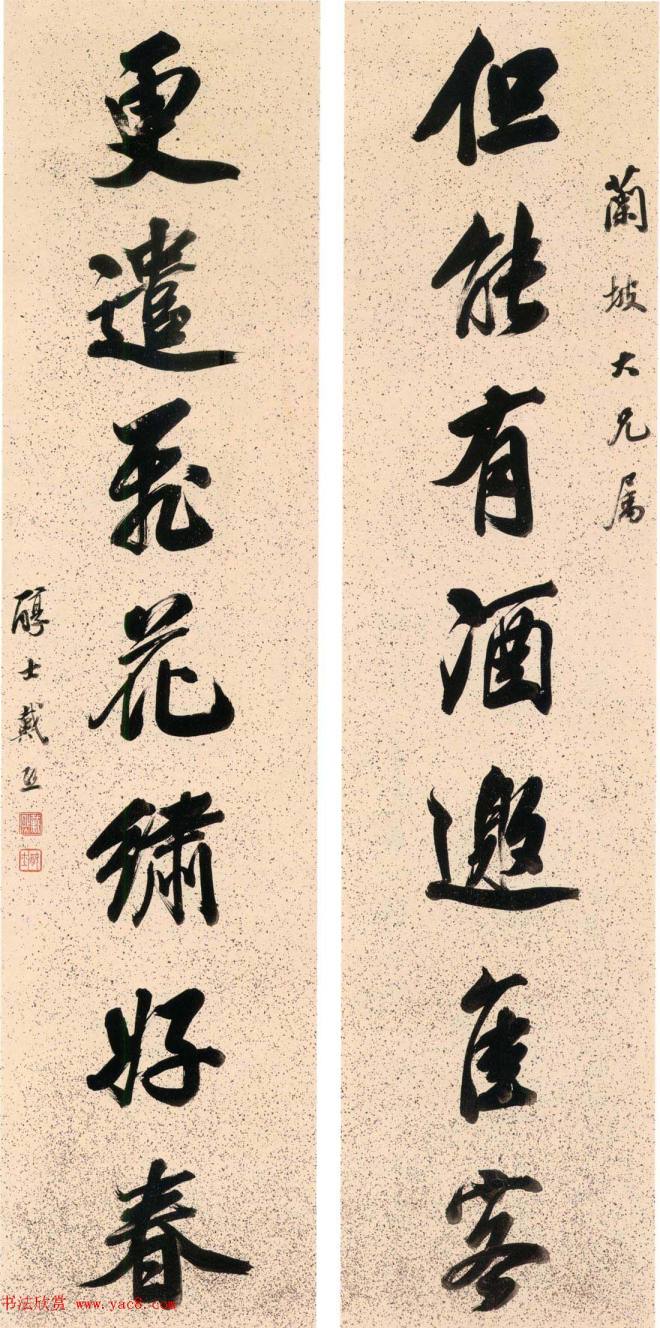 蘭坡大兄属
但能有酒邀佳客
更遣飛花繡好春
醇士戴熙
书法欣赏 www.yac8.com